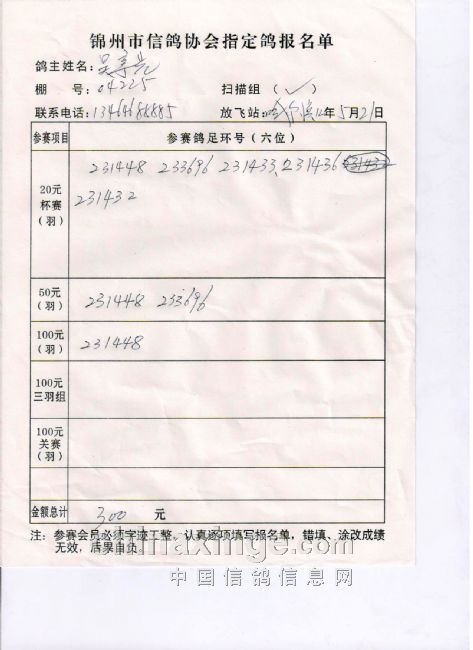 锦州市信鸽协会指定鸽报名单
鸽主姓名：吴景光
棚 号：04225 扫描组（✓）
联系电话：13464686885 放飞站：哈尔滨12年5月21日
参赛项目 参赛鸽足环号（六位）
20元杯赛（羽） 231448 233696 231433、231436
231432
50元（羽） 231448 233696
100元（羽） 231448
100元三羽组
100元关赛（羽）
金额总计 300 元
注：参赛会员必须字迹工整、认真逐项填写报名单，错填、涂改成绩
无效，后果自负
chinaxinge.com
中国信鸽信息网